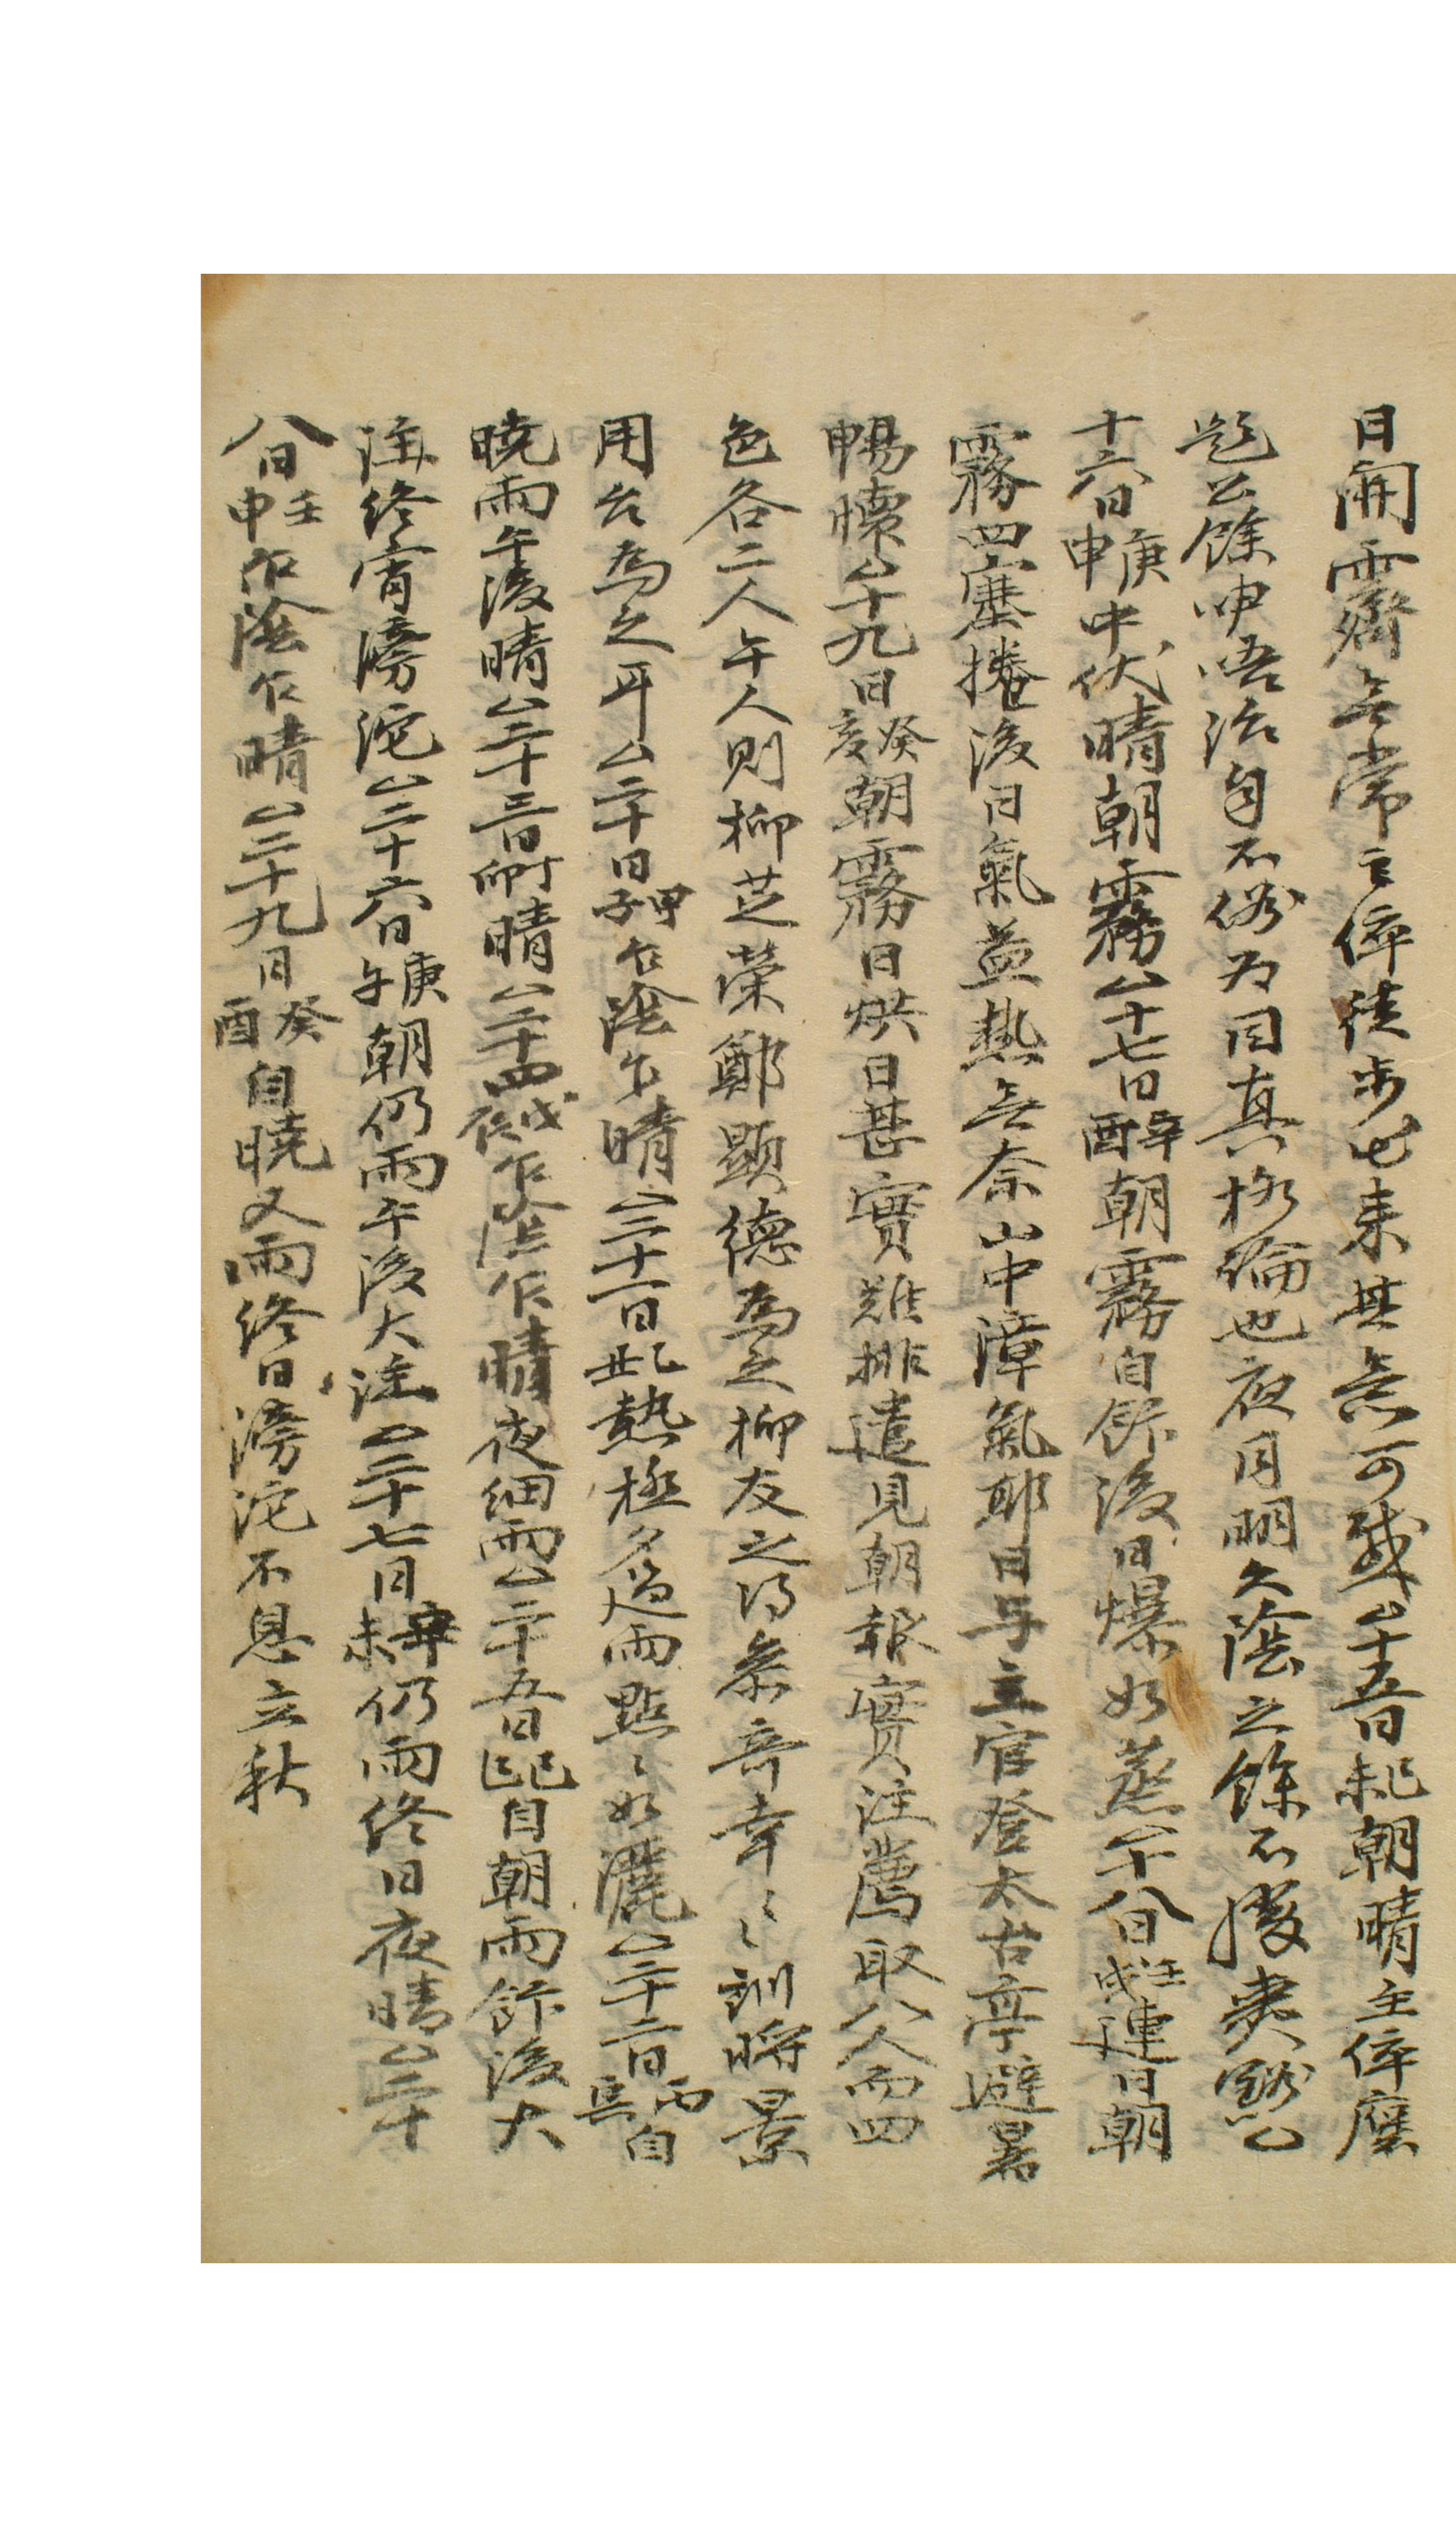 日開霽無常云倅徒步出來甚無可感△十五日己未朝晴主倅麾
題公餘呻唔治自不俗為同真格倫也夜月明久陰之餘不勝爽豁△
十六日庚申中伏晴朝霧△十七日辛酉朝霧自餙後日爆如蒸△十八日壬戌連日朝
霧四塞捲後日氣益熱無奈山中漳氣耶日与主官登太古亭避暑
暢懷△十九日癸亥朝霧日烘日甚實難排遣見朝報實注薦取八人而四
色各二人午人則柳芝榮鄭顯德為之柳友之得參奇幸〻訓將景
用台為之耳△二十日甲子乍陰乍晴△二十一日乙丑熱極夕過雨點〻如灑△二十二日丙寅自
曉雨午後晴△二十三日丁卯晴△二十四戊辰乍陰乍晴夜細雨△二十五日己巳自朝雨餙後大
注終宵滂沱△二十六日庚午朝仍雨午後大注△二十七日辛未仍雨終日夜晴△二十
八日壬申乍陰乍晴△二十九日癸酉自曉又雨終日滂沱不息立秋